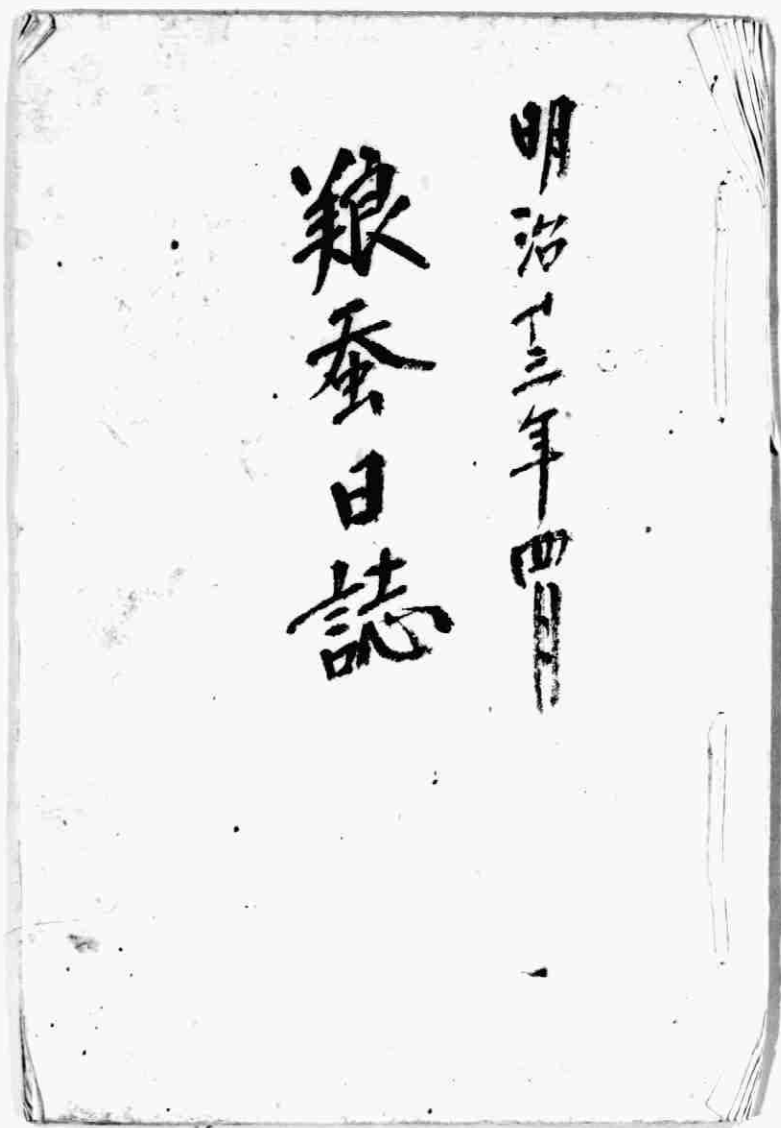 明治十三年四月
養蚕日誌